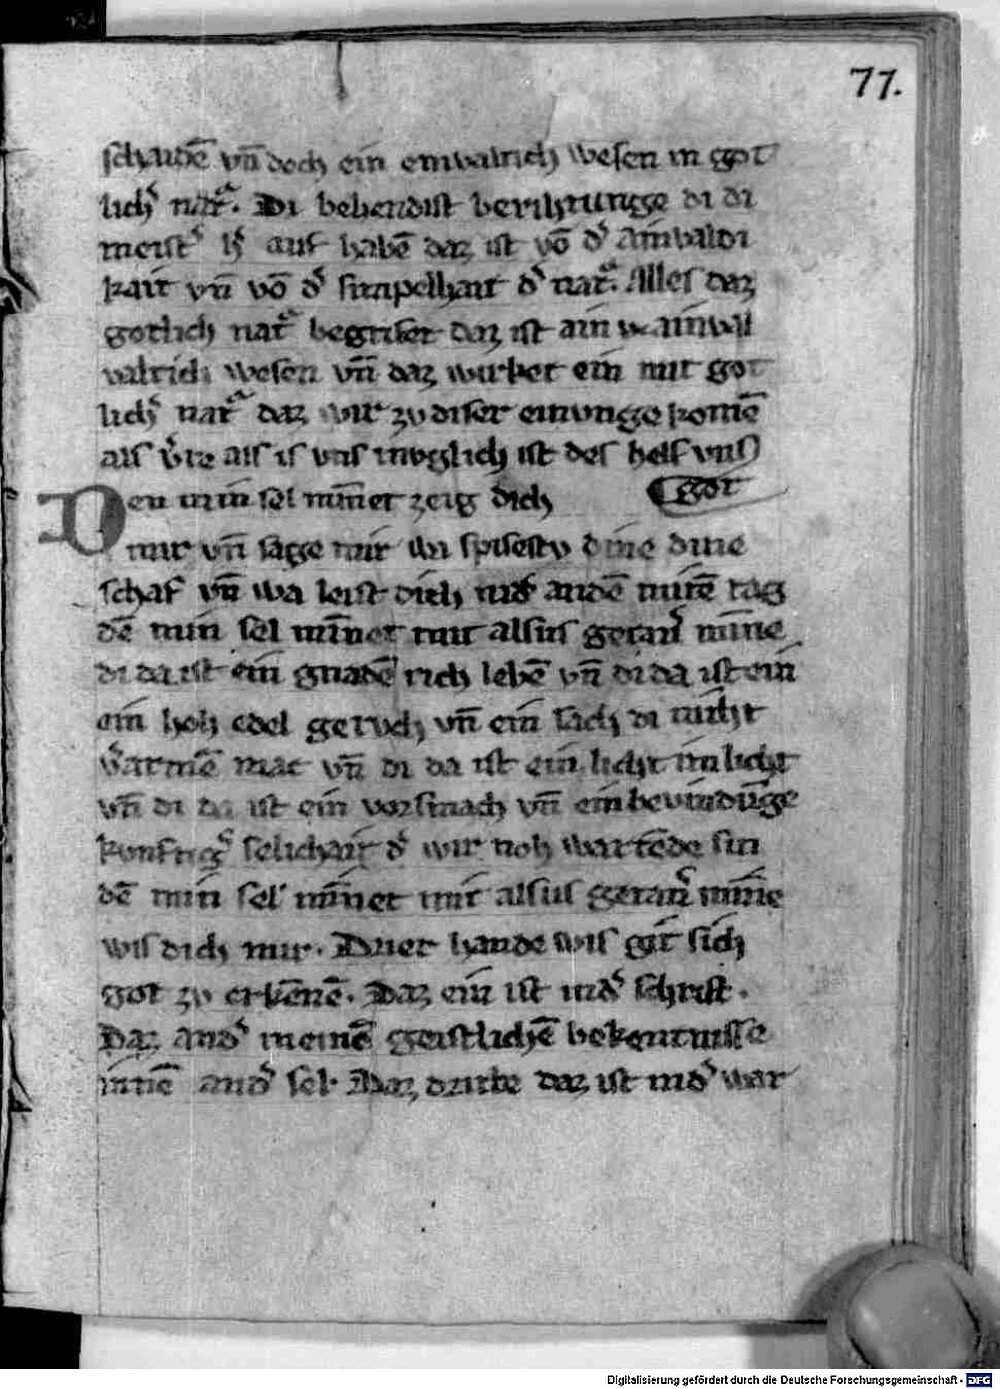 77.
schaidē vn̄ doch ein einvalrich wesen in got
lich᷑ natᷓ. Di behendist berihtunge di di
meist᷑ h᷑ auf habē daz ist vō d᷑ ainvaldi
kait vn̄ vō d᷑ simpelhait d᷑ natᷓ. Alles daz
gotlich natᷓ begrifet daz ist ain
valrich wesen vn̄ daz wirket ein mit got
lich᷑ natᷓ daz wir zu diser einvnge komē
als v᷑re als is vns mvglich ist des helf vns
got
Den min sel minnet zeig dich
mir vn̄ sage mir wa spisestv dine
schaf vn̄ wa leist dich nid᷑ an dē mitē tag
dē min sel mīnet mir alsus getan᷑ mīne
di da ist ein gnadē rich lebē vn̄ di da ist ein
ein hoh edel geruch vn̄ ein sach di niht
v᷑armē mac vn̄ di da ist ein licht im licht
vn̄ di da ist ein vorsmach vn̄ ein bevindūge
kvnftig᷑ selichait d᷑ wir noh wartēde sin
dē min sel mīnet mir alsus getan᷑ mīne
wis dich mir. Drier hande wis git sich
got zv erkēnē. Daz ein ist in d᷑ schrift.
Daz and᷑ in einē geistlichē bekentnisse
innē and᷑ sel. Daz dritte daz ist in d᷑ war
Digitalisierung gefördert durch die Deutsche Forschungsgemeinschaft - DFG